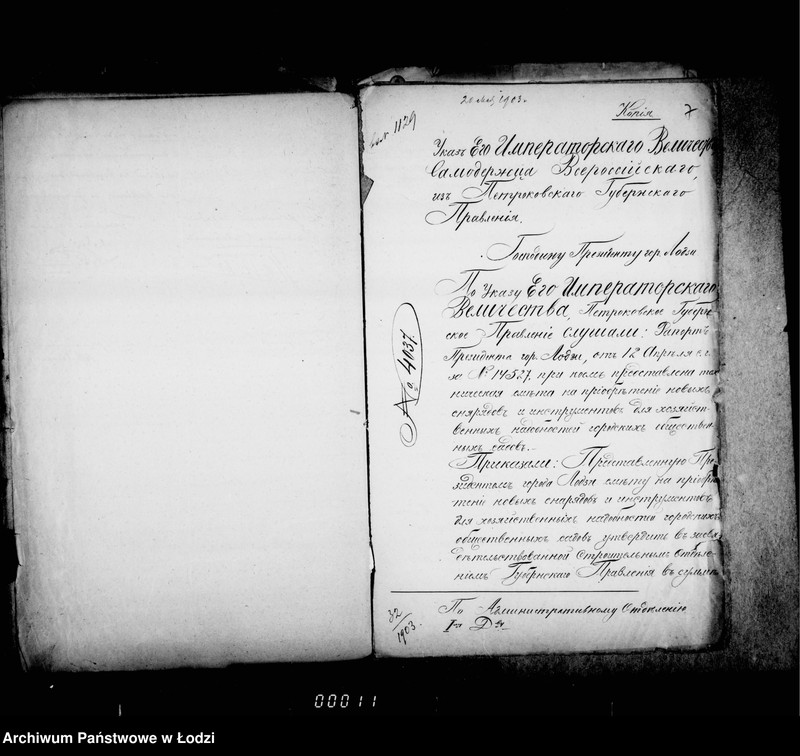 1903 г.
Копія
7
1129
Указъ Его Императорскаго Величества
Самодержца Всероссійскаго,
изъ Петроковскаго Губернскаго
Правленія.
Господину Президенту гор. Лодзи
По Указу Его Императорскаго
Величества, Петроковское Губерн-
ское Правленіе слушали: Рапортъ
Президента гор. Лодзи, отъ 12 Апрѣля с.г.
за № 14527, при коемъ представлена тех
ническая смѣта на пріобрѣтеніе новыхъ
снарядовъ и инструментовъ для хозяйст-
венныхъ надобностей городскихъ обществен-
ныхъ садовъ.-
Приказали: Представленную Пре-
зидентомъ города Лодзи смѣту на пріобрѣ
теніе новыхъ снарядовъ и инструментовъ
для хозяйственныхъ надобностей городскихъ
общественныхъ садовъ утвердить въ засви
дѣтельствованной Строительнымъ Отдѣле-
ніемъ Губернскаго Правленія въ суммѣ
No. 4037.
По Административному Отдѣленію
32
1903.
00011
Archiwum Państwowe w Łodzi